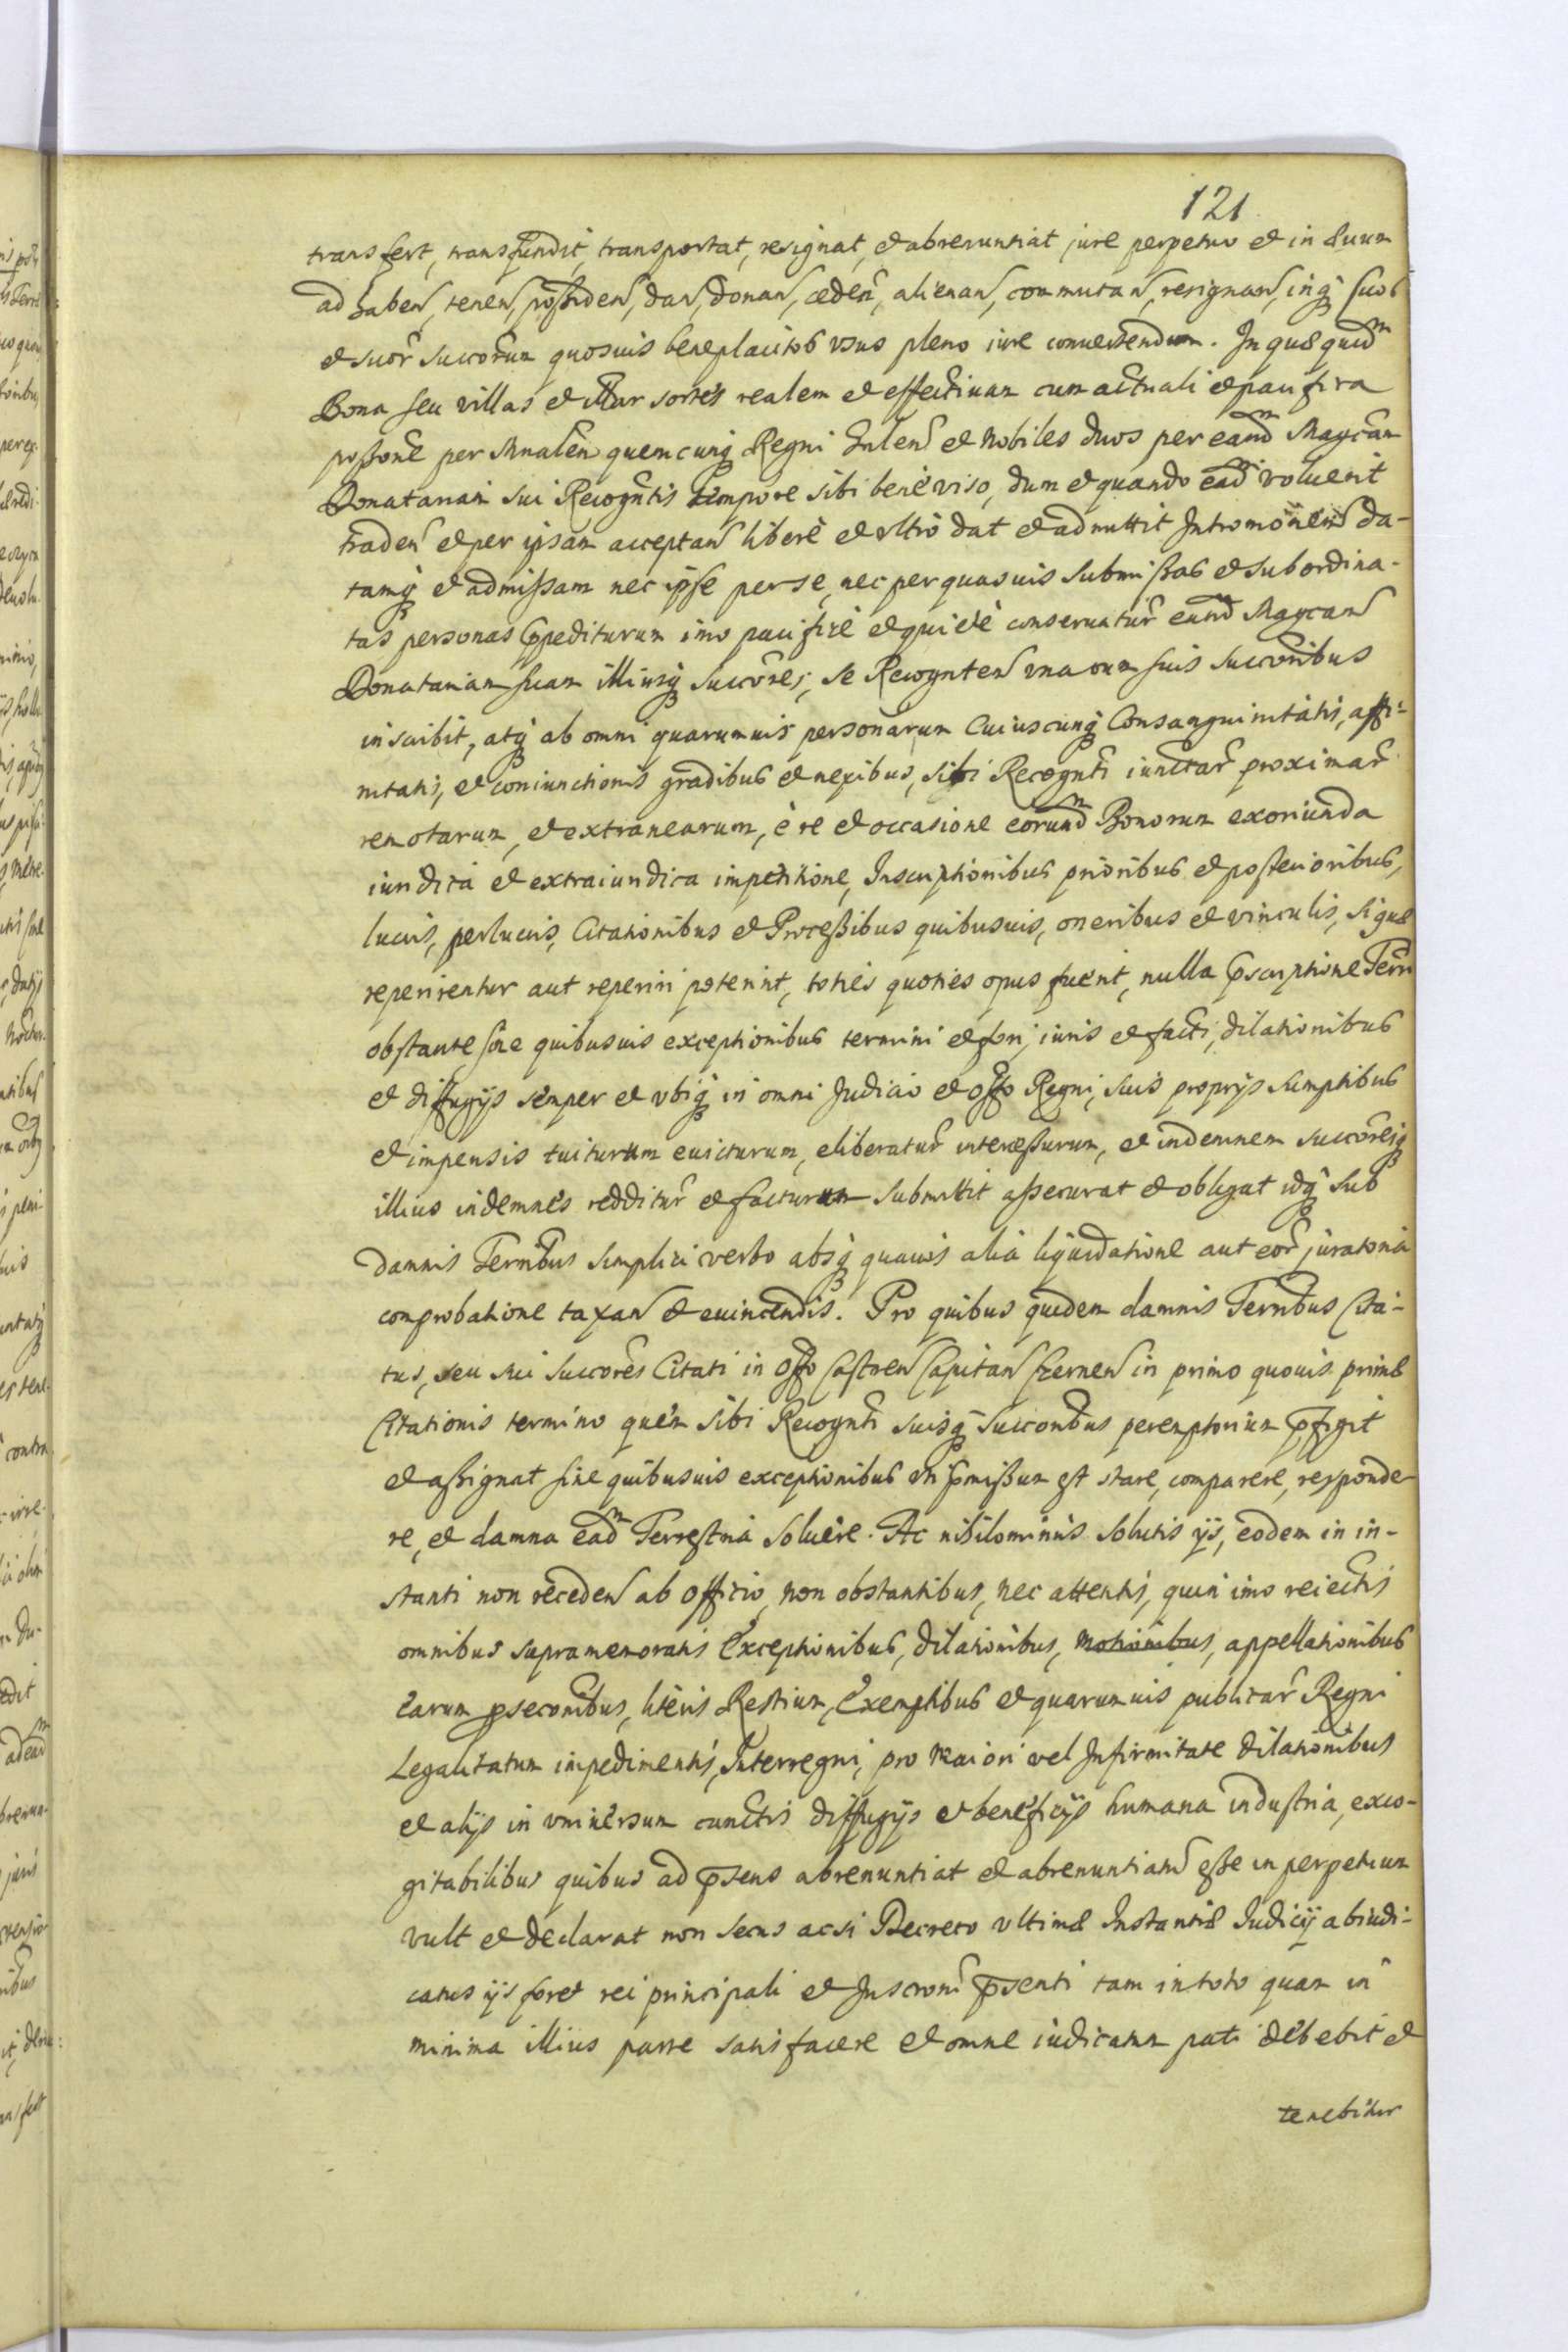 121
transfert, transfundit, transportat, resignat, et abrenuntiat jure perpetuo et in ævum
ad haben, tenen, possiden, dan, donan, ceden, alienan, commutan, resignan, inq suos
et suor succorum quosvis beneplacitos usus pleno iure convertendum. In quæ quidm
Bona seu villas et illar sortes realem et effectivam cum actuali et pacifica
possone per Mnalem quemcunq Regni Gnlem et Nobiles duos per eandm Magcam
Donatariam sui Recogntis tempore sibi benè viso, dum et quando eadm voluerit
traden et per ipsam acceptan liberè et ultrò dat et admittit Intromonem da-
tamq et admissam nec ipse per se, nec per quasvis submissas et subordina-
tas personas impediturum imo pacificè et quietè conservatur eandm Magcam
Donatariam suam illiusq succores, se Recognten una cum suis succoribus
inscribit, atq ab omni quarumvis personarum cuiuscunq Consanguinitatis, affi-
nitatis, et coniunctionis gradibus et nexibus, sibi Recognti iunctar proximar
remotarum, et extranearum, è re et occasione eorundm Bonorum exoriunda
iuridica et extraiuridica impetitione, Inscriptionibus prioribus et posterioribus,
lucris, perlucris, Citationibus et Processibus quibusvis, oneribus et vinculis, si quæ
reperirentur aut reperiri poterint, toties quoties opus fuerit, nulla pscriptione Terri
obstante sine quibusvis exceptionibus termini et fori, iuris et facti, dilationibus
et diffugijs semper et ubiq in omni Judicio et Offo Regni, suis proprijs sumptibus
et impensis tuiturum evicturum, eliberatur intercessurum, et indemnem succoresq
illius indemnes redditur et facturum submittit assecurat et obligat idq sub
damnis Terribus simplici verbo absq quavis alia liquidatione aut eor juratoria
comprobatione taxan et evincendis. Pro quibus quidem damnis Terribus Cita-
tus, seu sui succores Citati in Offo Castren Capitan Czernen in primo quovis primæ
Citationis termino quem sibi Recognti suisq succoribus peremptorium pfigit
et assignat sine quibusvis exceptionibus uti pmissum est stare, comparere, responde-
re, et damna eadm Terrestria solvere. Ac nihilominus solutis ijs, eodem in in-
stanti non receden ab officio, non obstantibus, nec attentis, quin imo reiectis
omnibus supramemoratis Exceptionibus, dilationibus, motionibus, appellationibus
earum psecombus, literis Restium, Exemptibus et quarumvis publicar Regni
Legalitatum impedimentis, Interregni, pro Maiori vel Infirmitate dilationibus
et alijs in universum cunctis diffugijs et beneficijs humana industria, exco-
gitabilibus quibus ad psens abrenuntiat et abrenuntiatu esse in perpetuum
vult et declarat non secus acsi Decreto ultimæ Instantiæ Judicij abiudi-
catus ijs foret rei principali et Inscroni psenti tam in toto quam in
minima illius parte satisfacere et omne iudicatum pati debebit et
tenebitur